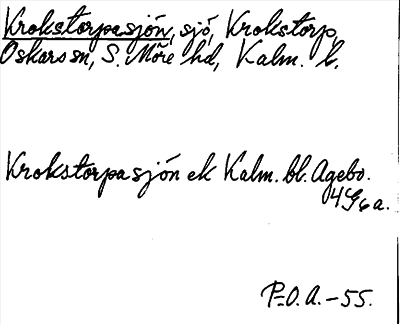 Krokstorpasjön, sjö, Krokstorp,
Oskars sn, S. Möre hd, Kalm. l.
Krokstorpasjön ek Kalm. bl. Agebo.
4G6a.
P-O.A.-55.